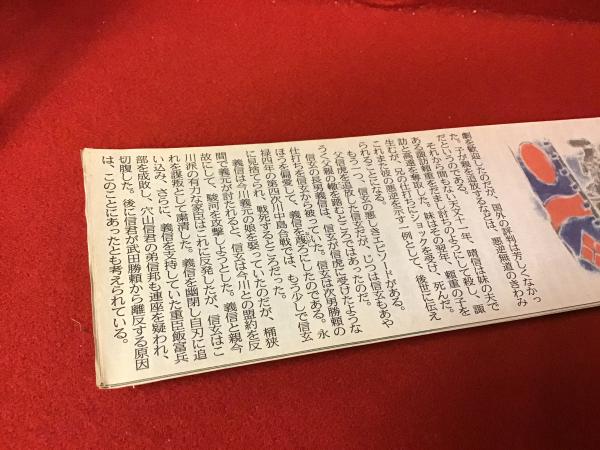 劇を歓迎したのだが、国外の評判は芳しくなかっ
た。子が親を追放するなどは、悪逆無道のきわみ
だというのである。
それから間もない天文十一年、晴信は妹の夫で
ある諏訪頼重をだまし討ちのようにして殺し、諏
訪と高遠を奪取した。妹はその翌年、頼重の子を
生むが、兄の仕打ちにショックを受け、死んだ。
これまた彼の悪逆を示す一例として、後世に伝え
られることになる。
もう一つ、信玄の悪しきエピソードがある。
父信虎を追放した信玄だが、じつは信玄もあや
うく父親の轍を踏むところであったのだ。
信玄の長男義信は、信玄が信虎に受けたような
仕打ちを信玄から被っていた。信玄は次男勝頼の
ほうを偏愛して、義信を蔑ろにしたのである。永
禄四年の第四次川中島合戦では、もう少しで信玄
に見捨てられ、戦死するところだった。
義信は今川義元の娘を娶っていたのだが、桶狭
間で義元が討たれると、信玄は今川との盟約を反
故にして、駿河を攻撃しようとした。義信と親今
川派の有力な家臣はこれに反発したが、信玄はこ
れを謀叛として粛清した。義信を幽閉し自刃に追
い込み、さらに、義信を支持していた重臣飯富兵
部を成敗し、穴山信君の弟信邦も連座を疑われ、
切腹した。後に信君が武田勝頼から離反する原因
は、このことにあったとも考えられている。